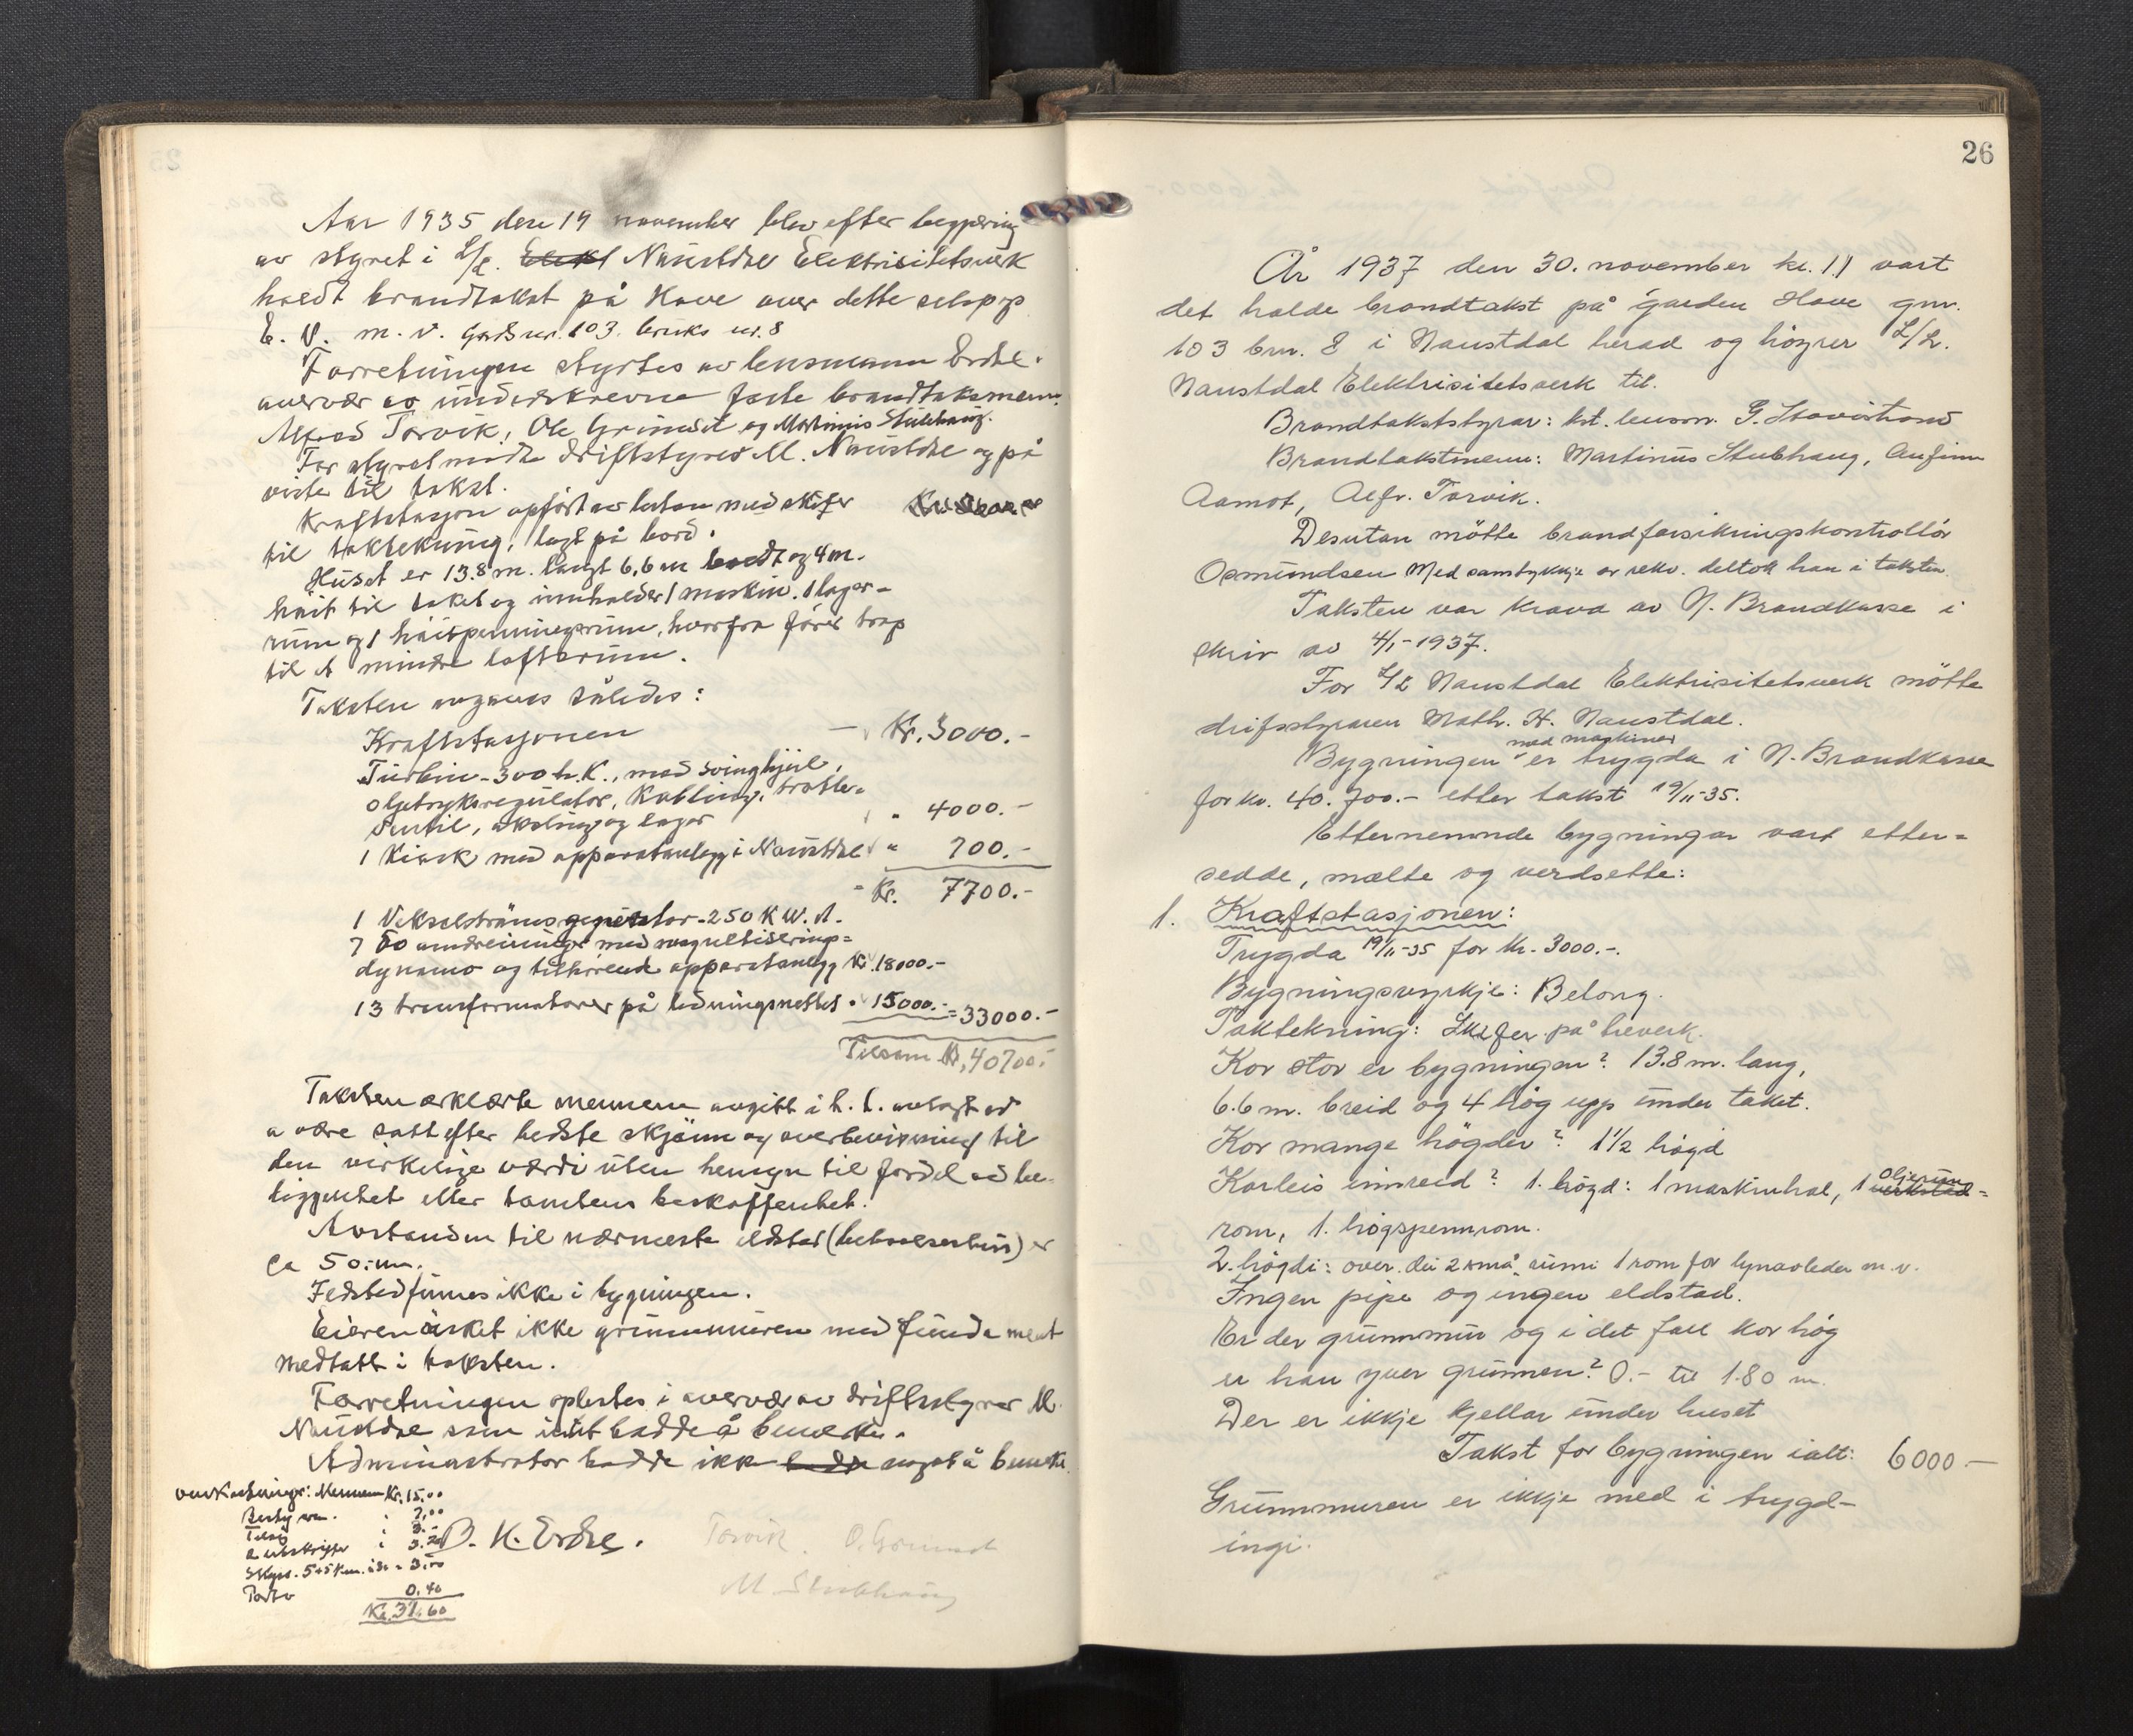 Aar 1935 den 19 november blev efter begjæring
av styret i L/L. Elekt Naustdal Elektrisitetsverk
holdt brandtakst på Hove over dette selsps
E. V. m. v. Gards nr. 103. bruks nr. 8
Forretningen styrtes av lensmann Erdal.
overvær av underskrevne faste brandtaksmenn
Alfred Torvik, Ole Grimset og Martinus Stubhaug.
For styret møtte driftstyrer M. Naustdal og på
viste til takst.
Kraftstasjon opført av beton med skifer
til taktekning, lagt på bord.
Huset er 13.8 m. langt 6,6 m bredt og 4 m.
høit til taket og inneholder 1 maskin. 1 lager-
rum og 1 høispenningsrum, hvorfra fører trap
til et mindre loftsrum.
Taksten avgaves således:
Kraftstasjonen — Kr. 3000.-
Turbin - 300 h.K., med svinghjul,
oljetryksregulator, Kobling, trottle-
ventil, aksling og lager " 4000.-
1 Kiosk med apparatanlegg i Naustdal " 700.-
= Kr. 7700.-
1 Vekselstrøms generator - 250 K W. A.
750 omdreininger med magnetiserings-
dynamo og tilhørende apparatanlegg Kr. 18000.-
13 transformatorer på ledningsnettet " 15000.- = 33000.-
Tilsam. Kr. 40700.-
Taksten erklærte mennene avgitt i h. t. avlagt ed
a være satt efter bedste skjønn og overbevisning til
den virkelige værdi uten hensyn til fordel ved be-
liggenhet eller tomtens beskaffenhet.
Avstanden til nærmeste ildsted (beboelseshus) er
ca 50.m.
Ildsted finnes ikke i bygningen.
Eieren ønsket ikke grunnmuren med fundament
medtatt i taksten.
Forretningen oplestes i overvær av driftsstyrer M.
Naustdal som intet hadde å bemerke.
Administrator hadde ikke hadde noget å bemerke.
Omkostninger: Mennene Kr. 15.00
Bestyreren. " 7,00
Tilsig " 3.-
a utskrifter " 3.20
Skyss. 5+5 km. = 3.00
Porto 0.40
Kr. 31.60
B. K. Erdal. Torvik. O. Grimset
M. Stubhaug
26
År 1937 den 30. november kl. 11 vart
det halde brandtakst på garden Hove gnr.
103 bnr. 8 i Naustdal herad og høyrer L/L.
Naustdal Elektrisitetsverk til.
Brandtakststyrar: kst. lensm. G. Stavøstrand
Brandtakstmenn: Martinus Stubhaug, Anfinn
Aamot, Alfr. Torvik.
Desutan møtte brandforsikringskontrollør
Osmundsen Med samtykkje av rekv. deltok han i taksten.
Taksten var kravd av N. Brandkasse i
skriv av 4/1-1937.
For L/L Naustdal Elektrisitetsverk møtte
drifsstyraren Math. H. Naustdal.
med maskiner
Bygningen er trygda i N. Brandkasse
for kr. 40.700.- etter takst 19/11-35.
Etternemnde bygningar vart etter-
sedde, mælte og verdsette:
1. Kraftstasjonen:
Trygda 19/11-35 for kr. 3000.-.
Bygningsvyrkje: Betong.
Taktekning: Skifer på treverk.
Kor stor er bygningen? 13.8 m. lang,
6.6 m. breid og 4 høg upp under taket.
Kor mange høgder? 1½ høgd
Korleis innreid? 1. høgd: 1 maskinhal, 1 verkstad-
Oljerum
rom, 1. høgspennrom.
2. høgdi: over dei 2 små rumi 1 rom for lynavleder m.v.
Ingen pipe og ingen eldstad.
Er der grunnmur og i det fall kor høg
er han yver grunnen? 0.- til 1.80 m.
Der er ikkje kjellar under huset
Takst for bygningen ialt: 6000.—
Grunnmuren er ikkje med i trygd-
ingi.